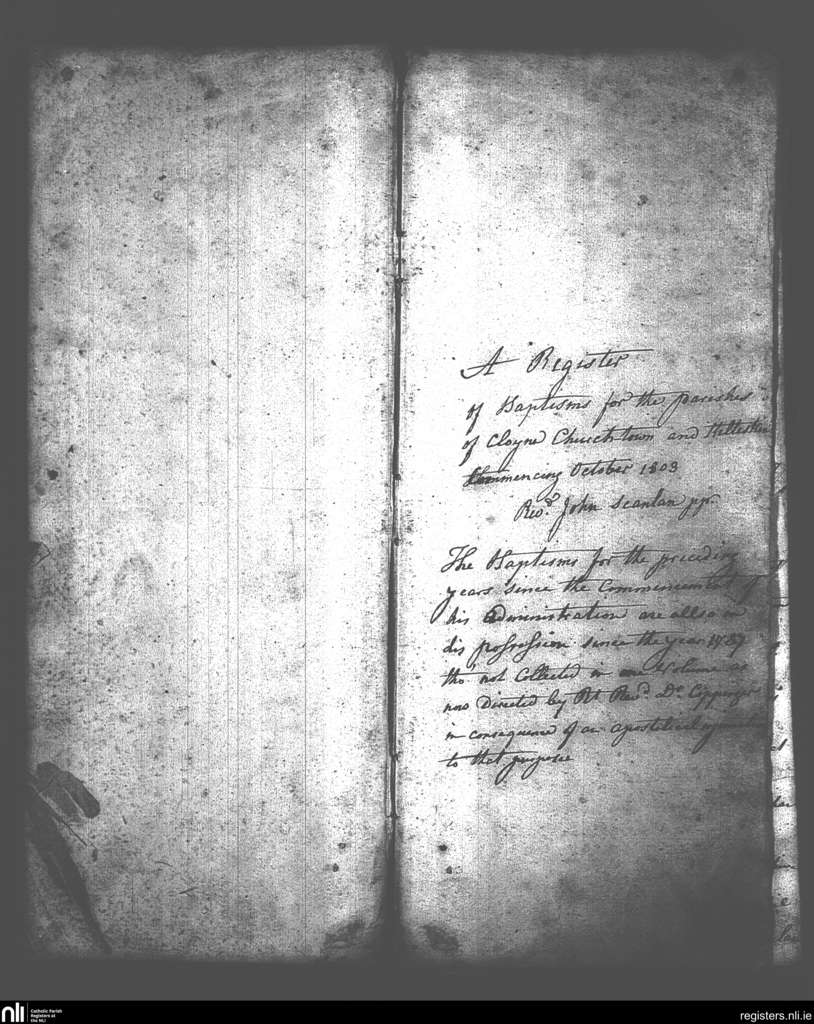 A Register
of Baptisms for the parishes
of Cloyne Churchtown and
Commencing October 1803
Revd. John Scanlan pp.
The Baptisms for the preceding
years since the Commencement of
his administration are allso in
his possession since the year 1787
tho' not Collected in one Volume as
now Directed by Rt. Revd. Dr. Coppinger
in consequence of an apostolical
to that purpose
nli
Catholic Parish
Registers at
the NLI
registers.nli.ie